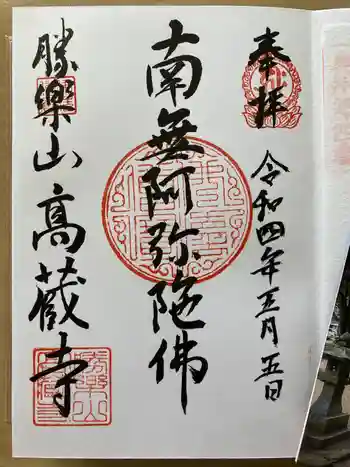 奉拝
令和四年三月五日
南無阿弥陀佛
勝樂山高蔵寺